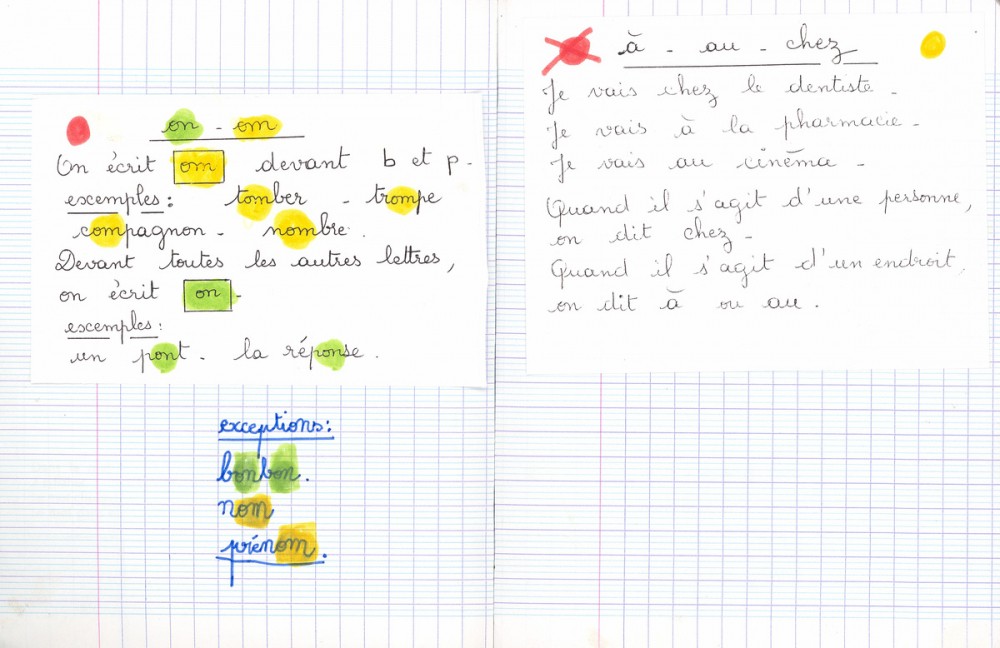 on - om
On écrit om devant b et p.
exemples : tomber - trompe
compagnon - nombre.
Devant toutes les autres lettres,
on écrit on.
exemples :
un pont - la réponse.
exceptions :
bonbon.
nom
prénom.
à - au - chez
Je vais chez le dentiste -
Je vais à la pharmacie -
Je vais au cinéma -
Quand il s'agit d'une personne,
on dit chez -
Quand il s'agit d'un endroit,
on dit à ou au.